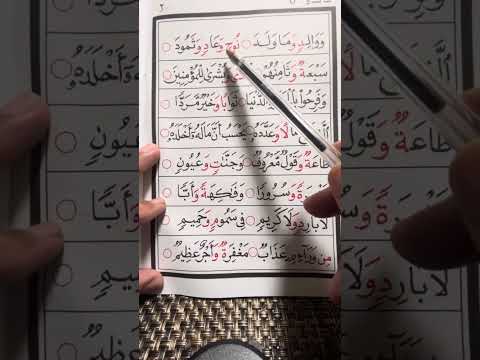 ٢
وَوَالِدٍ وَمَا وَلَدَ ○ نُوحٍ وَعَادٍ وَثَمُودَ
سَبْعَةٌ وَثَامِنُهُمْ ○ وَبُشْرَىٰ لِلْمُؤْمِنِينَ
وَفَرِحُوا الدُّنْيَا ○ ثَوَابًا وَخَيْرٌ مَّرَدًّا
مَالًا وَعَدَّدَهُ ○ يَحْسَبُ أَنَّ مَالَهُ أَخْلَدَهُ
طَاعَةٌ وَقَوْلٌ مَّعْرُوفٌ ○ وَجَنَّتٍ وَعُيُونٍ
وَسُرُورًا ○ وَفَكِهَةً وَأَبًّا
لَا بَارِدٍ وَلَا كَرِيمٍ ○ فِي سَمُومٍ وَحَمِيمٍ
مِن وَرَآءِهِمْ عَذَابٌ ○ مَغْفِرَةٌ وَأَجْرٌ عَظِيمٌ